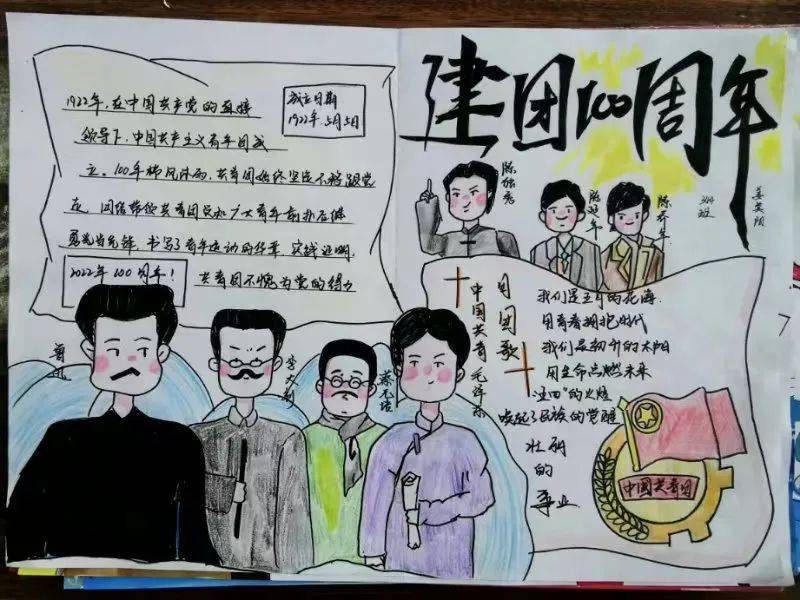 建团100周年
1922年，在中国共产党的直接
领导下，中国共产主义青年团成
立。100年栉风沐雨，共青团始终坚定不移跟党
走，团结带领共青团员和广大青年前扑后继
勇当先锋，书写了青年运动的华章，实践证明，
共青团不愧为党的得力
成立日期
1922年5月5日
2022年100周年！
陈独秀
陈延年
陈乔年
班
鲁迅
李大钊
蔡元培
毛泽东
中国共青
团团歌
我们是五月的花海
用青春拥抱时代
我们是初升的太阳
用生命点燃未来
"五四"的火炬
唤起了民族的觉醒
壮丽
的
事业
中国共青团